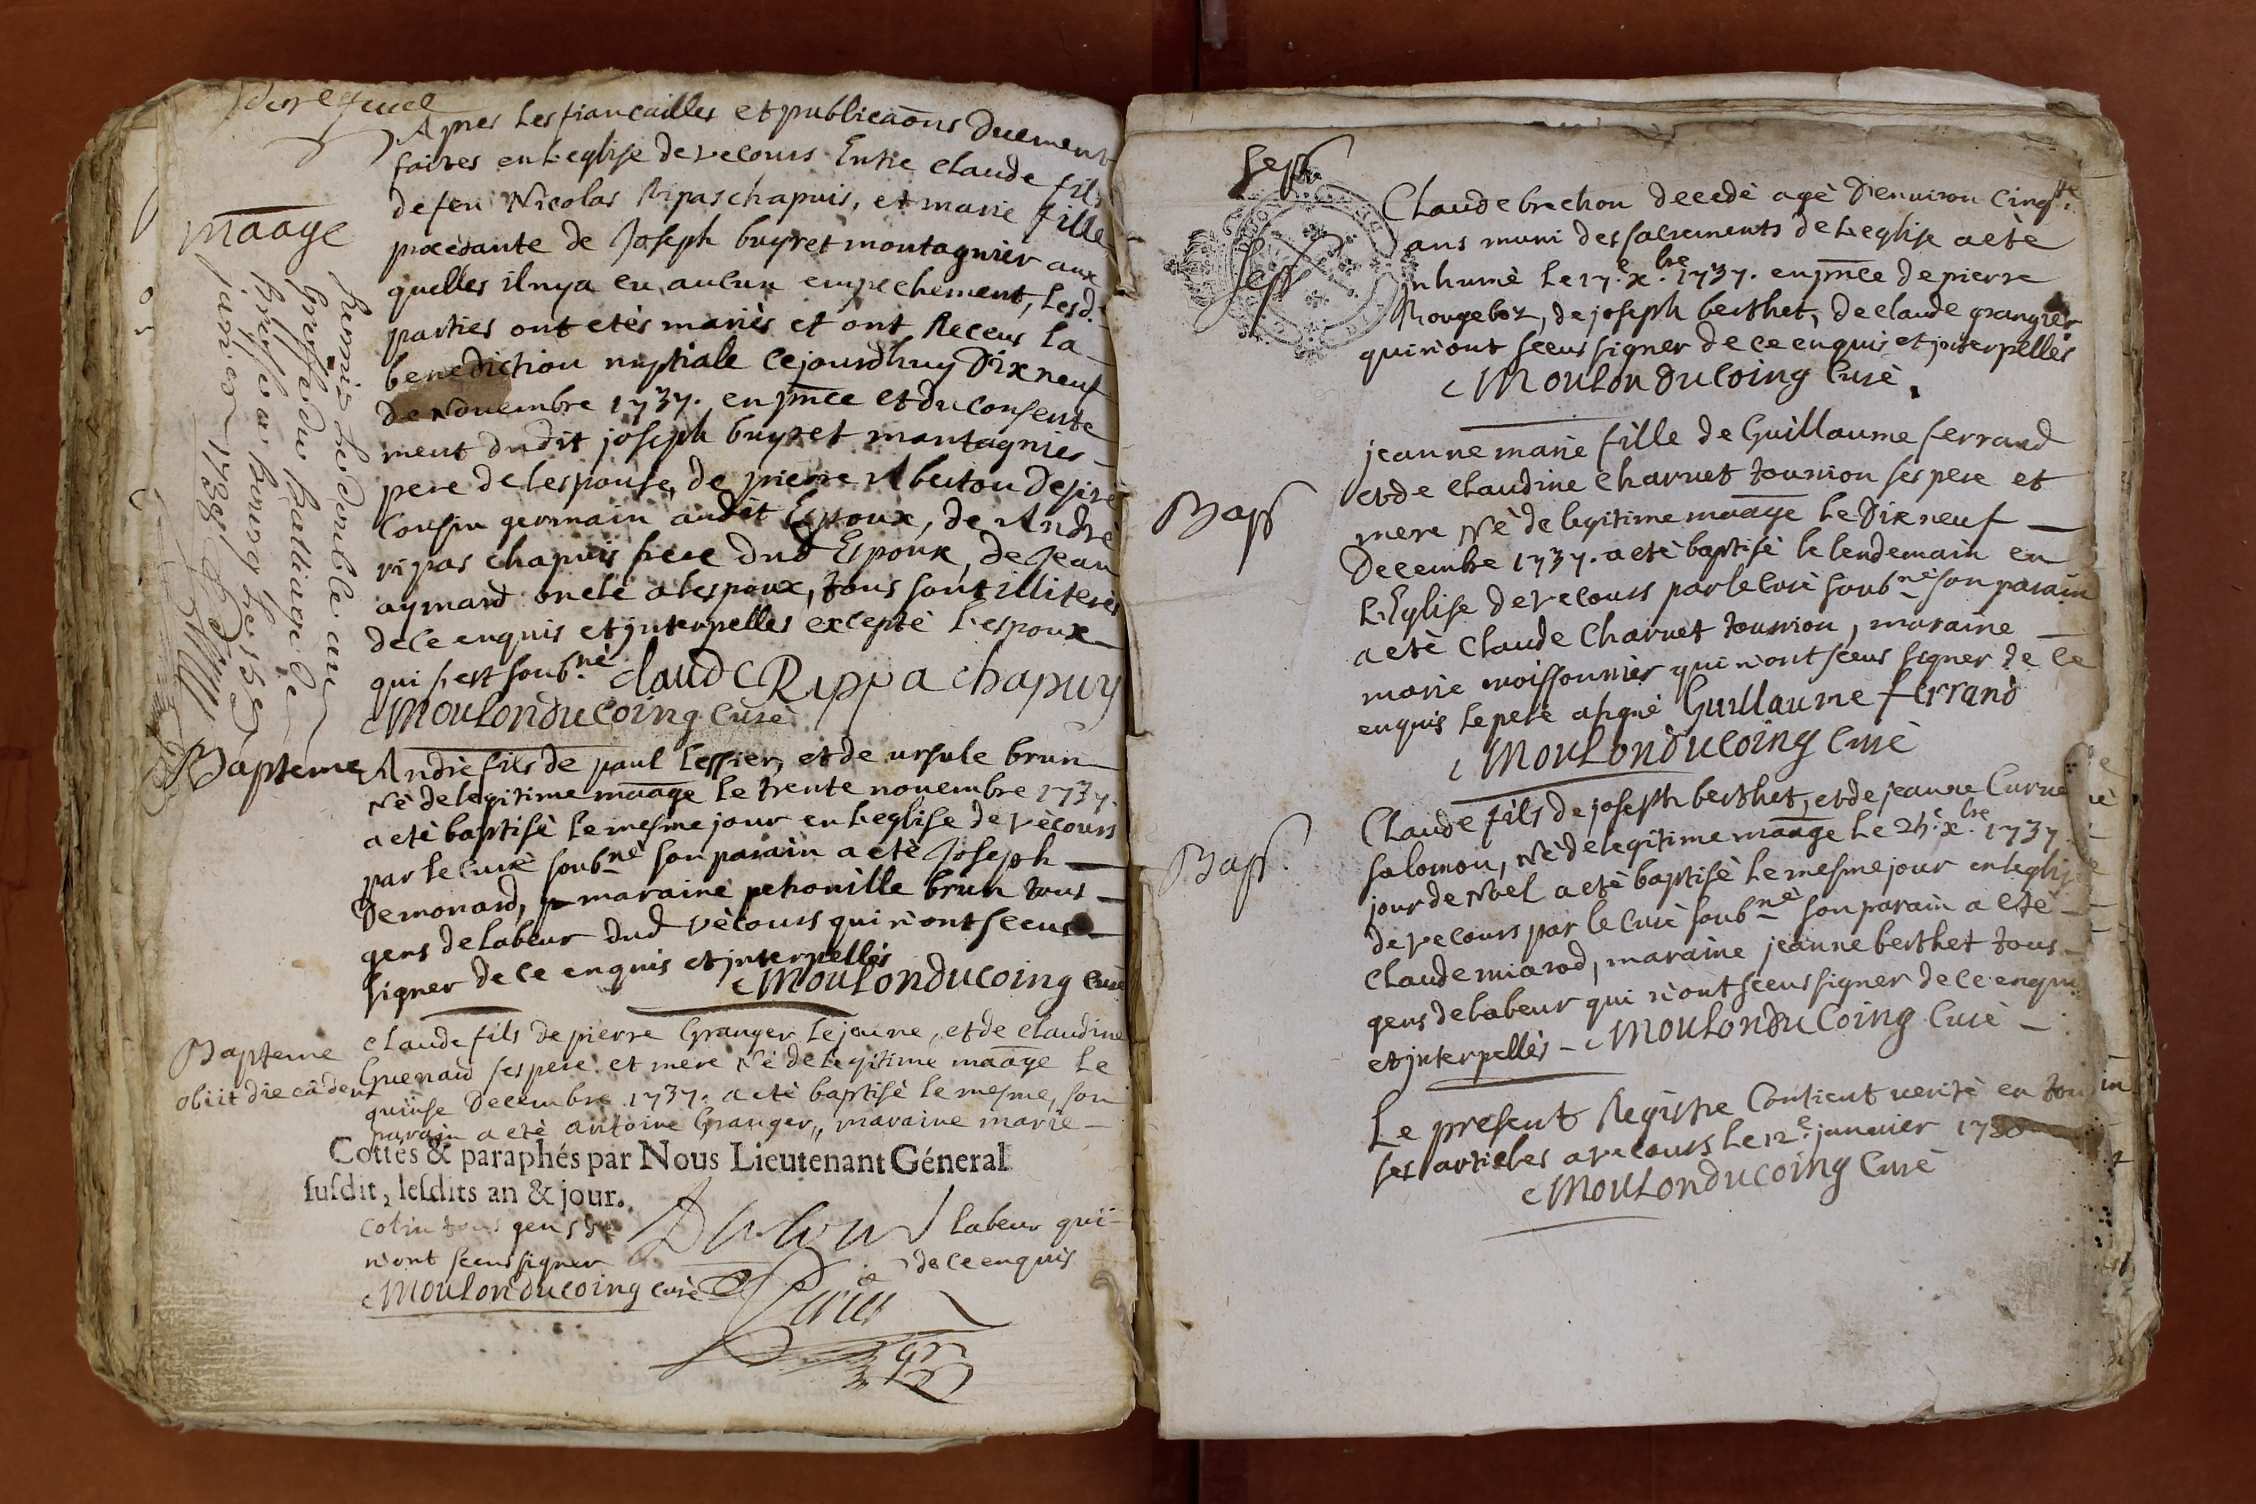 Apres les fiancailles et publicaons duement
faites en Leglise de vecours Entre claude fils
de feu Nicolas Ripas chapuis, et marie fille
maage
procedante de Joseph buyret montagnier aux
quelles il n'y a eu aucun empechement, Lesd.
parties ont etès mariès et ont Receus La
benediction nuptiale cejourdhuy Dix neuf
de Novembre 1737. en pnce et du consente
ment dudit joseph buyret montagnier
pere de lespouse, de pierre
Cousin germain audit Epoux, de Andrè
ripas chapuis frere dud Epoux, de Jean
aymard oncle a lespoux, tous sont illiterès
de ce enquis et interpelles exceptè L'espoux
qui s'est soubnè claude Rippa chapuy
Moulonducoing Curè
remis le double au
Greffe du Bailiage de
Bresse a Bourg le 15
janier 1738
Baptème
Andrè fils de paul Tessier, et de ursule brun
Nè de legitime maage le trente novembre 1737.
a etè baptisè le mesme jour en Leglise de vècours
par le curè soubnè son parain a etè Joseph
Demonard, maraine petronille brun tous
gens de labeur dud vècours qui n'ont sceus
signer de ce enquis et interpellès
Moulonducoing Curè
Bapteme
obiit die eâdem
claude fils de pierre Granger lejeune, et de claudine
Guenard ses pere et mere Nè de legitime maage le
quinse Decembre 1737. a etè baptisè le mesme, son
parain a etè antoine Granger, maraine marie
Cottés & paraphés par Nous Lieutenant Géneral
susdit, lesdits an & jour.
colin tous gens de labeur qui
n'ont sceus signer de ce enquis
Moulonducoing curè
Sep
Sep
Claude brechon decedè agè d'environ cinqte
ans muni des sacrements de Leglise a etè
inhumè le 17e. xbre 1737. en pnce de pierre
Rougeboz, de joseph berthet, de claude grangier
qui n'ont sceus signer de ce enquis et interpellès
Moulonducoing Curè.
Bap
jeanne marie fille de Guillaume ferrand
et de claudine charvet tournion ses pere et
mere Nè de legitime maage le Dix neuf
Decembre 1737. a etè baptisè le lendemain en
L'Eglise de vecours par le Curè soubnè son parain
a etè Claude Charvet tournion, maraine
marie moissonnier qui n'ont sceus signer de ce
enquis le pere a signè Guillaume ferrand
Moulonducoing Curè
Bap
Claude fils de joseph berthet, et de jeanne
salomon, Nè de legitime maage le 25e. xbre 1737.
jour de Noel a etè baptisè le mesme jour en leglise
de vecours par le Curè soubnè son parain a etè
claude miarod, maraine jeanne berthet tous
gens de labeur qui n'ont sceus signer de ce enquis
et interpellès Moulonducoing Curè
Le present Registre Contient veritè en tous
ses articles a vecours le 12e. janvier
Moulonducoing Curè